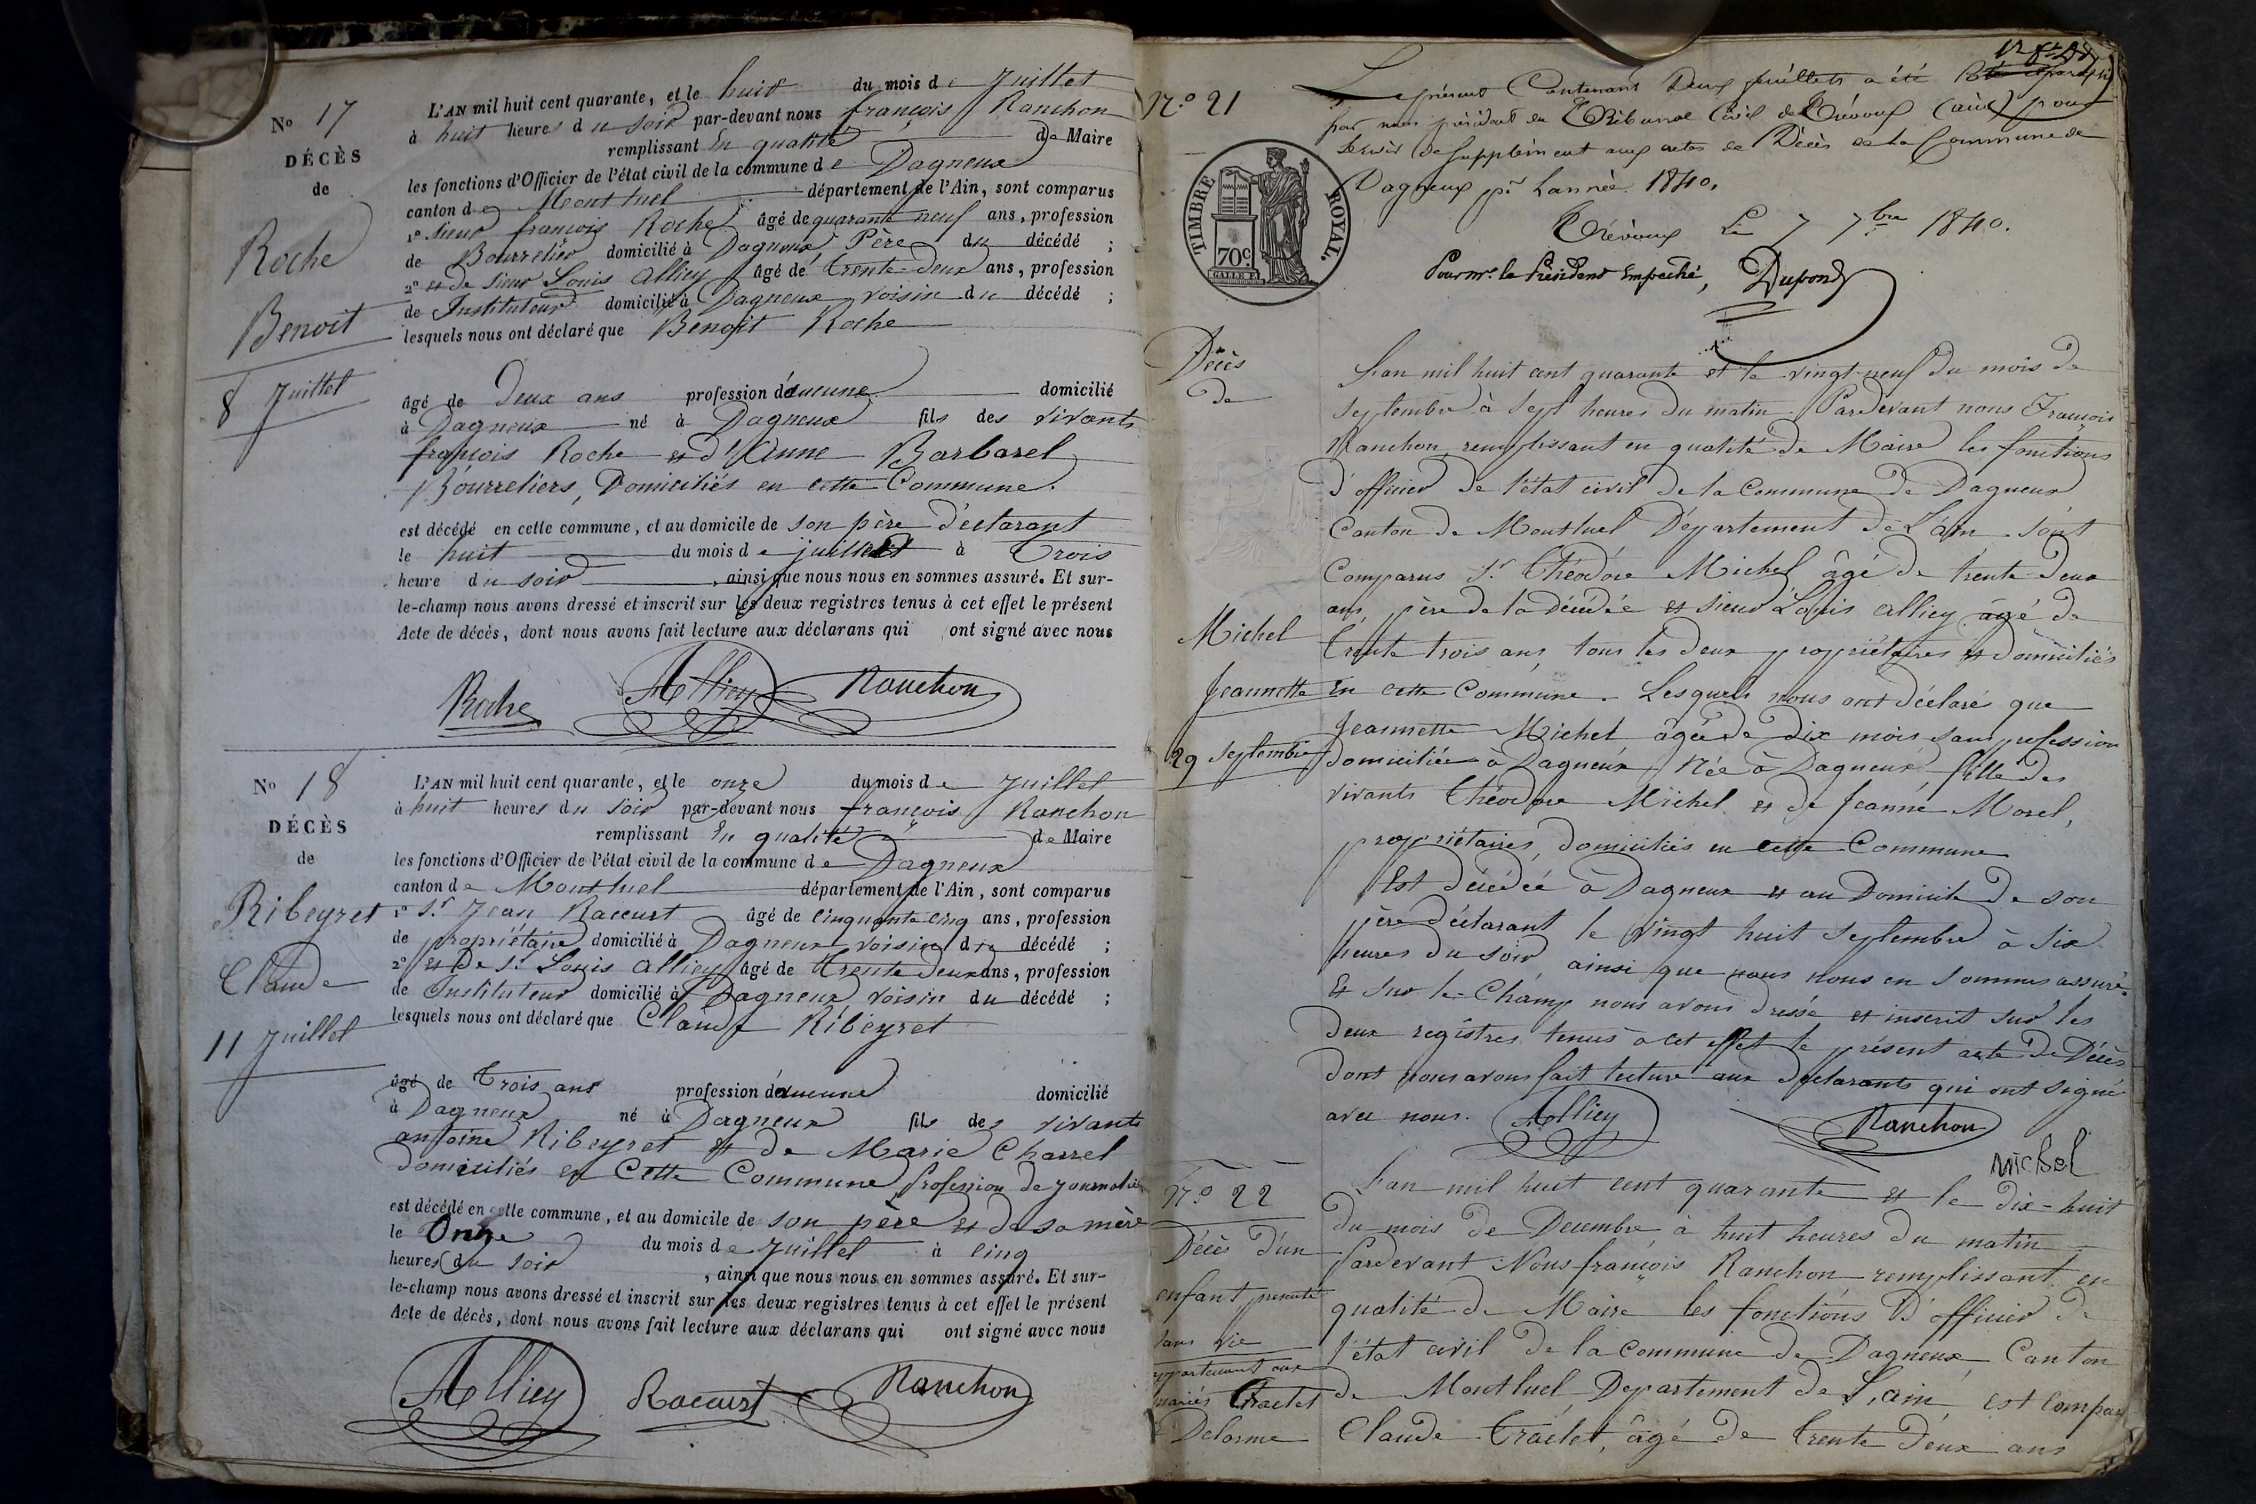 No 17
DÉCÈS
de
Roche
Benoit
8 Juillet
L'AN mil huit cent quarante, et le huit du mois de Juillet
à huit heures du soir par-devant nous françois Ranchon
remplissant En qualité de Maire
les fonctions d'Officier de l'état civil de la commune de Dagneux
canton de Montluel département de l'Ain, sont comparus
1º Sieur françois Roche âgé de quarante neuf ans, profession
de Bourrelier domicilié à Dagneux Père du décédé ;
2º et de Sieur Louis Alliey âgé de trente-deux ans, profession
de Instituteur domicilié à Dagneux voisin du décédé ;
lesquels nous ont déclaré que Benoit Roche
âgé de Deux ans profession d'aucune domicilié
à Dagneux né à Dagneux fils des vivants
françois Roche et d'Anne Barbarel
Bourreliers, Domiciliés en cette Commune.
est décédé en cette commune, et au domicile de son père déclarant
le huit du mois de juillet à Trois
heure du soir, ainsi que nous nous en sommes assuré. Et sur-
le-champ nous avons dressé et inscrit sur les deux registres tenus à cet effet le présent
Acte de décès, dont nous avons fait lecture aux déclarans qui ont signé avec nous
Roche Alliey Ranchon
No 18
DÉCÈS
de
Ribeyret
Claude
11 Juillet
L'AN mil huit cent quarante, et le onze du mois de Juillet
à huit heures du soir par-devant nous françois Ranchon
remplissant En qualité de Maire
les fonctions d'Officier de l'état civil de la commune de Dagneux
canton de Montluel département de l'Ain, sont comparus
1º Sr Jean Raccurt âgé de cinquante cinq ans, profession
de propriétaire domicilié à Dagneux voisin du décédé ;
2º et de Sr Louis Alliey âgé de trente deux ans, profession
de Instituteur domicilié à Dagneux voisin du décédé ;
lesquels nous ont déclaré que Claude Ribeyret
âgé de Trois ans profession d'aucune domicilié
à Dagneux né à Dagneux fils des vivants
antoine Ribeyret et de Marie Charrel
domiciliés en Cette Commune profession de journalier
est décédé en cette commune, et au domicile de son père et de sa mère
le Onze du mois de Juillet à cinq
heures du soir, ainsi que nous nous en sommes assuré. Et sur-
le-champ nous avons dressé et inscrit sur les deux registres tenus à cet effet le présent
Acte de décès, dont nous avons fait lecture aux déclarans qui ont signé avec nous
Alliey Raccurt Ranchon
Le présent Contenant Deux feuillets a été
par nous président du Tribunal Civil de Trévoux (ain) pour
servir de Supplément aux actes de Décès de la Commune de
Dagneux pr L'année 1840.
Trévoux Le 7 7bre 1840.
Pour Mr. le Président Empeché, Dupond
TIMBRE ROYAL.
70c.
Nº 21
Décès
de
Michel
Jeannette
29 Septembre
L'an mil huit cent quarante et le vingt-neuf du mois de
Septembre à sept heures du matin. Pardevant nous François
Ranchon, remplissant en qualité de Maire les fonctions
d'officier de l'état civil de la Commune de Dagneux
Canton de Montluel Département de L'ain. Sont
Comparus Sr Théodore Michel âgé de trente deux
ans, père de la Décédée et sieur Louis Alliey âgé de
trente trois ans, tous les deux propriétaires et domiciliés
En cette Commune. Lesquels nous ont déclaré que
Jeannette Michel âgée de dix mois sans profession
domiciliée à Dagneux Née à Dagneux fille des
vivants Théodore Michel et de Jeanne Morel,
propriétaires, domiciliés en cette Commune
Est décédée à Dagneux et au Domicile de son
père déclarant le vingt huit septembre à six
heures du soir, ainsi que nous nous en sommes assuré.
Et sur le Champ nous avons dressé et inscrit sur les
deux registres tenus à cet effet le présent acte de Décès
dont nous avons fait lecture aux déclarants qui ont signé
avec nous. Alliey Ranchon
Michel
Nº 22
Décès d'un
enfant présenté
sans vie
appartenant aux
mariés Traclet
Delorme
L'an mil huit cent quarante et le dix-huit
du mois de Decembre, à huit heures du matin
Pardevant Nous françois Ranchon remplissant en
qualité de Maire les fonctions d'officier de
l'état civil de la commune de Dagneux Canton
de Montluel, Departement de L'ain, est compar
Claude Traclet, âgé de trente deux ans